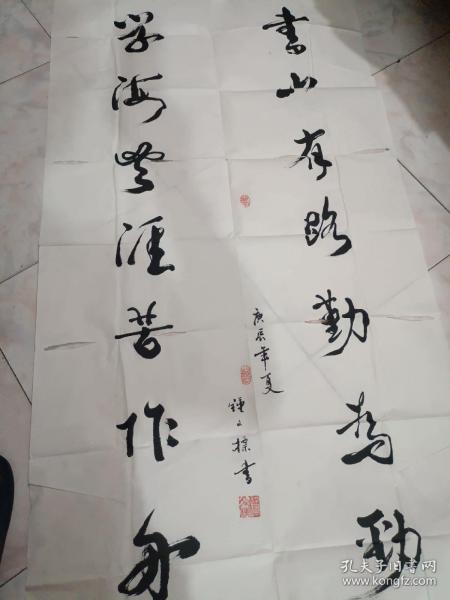 書山有路勤為勁
庚辰年夏
書
學海無涯苦作舟
孔夫子旧书网
www.kongfz.com